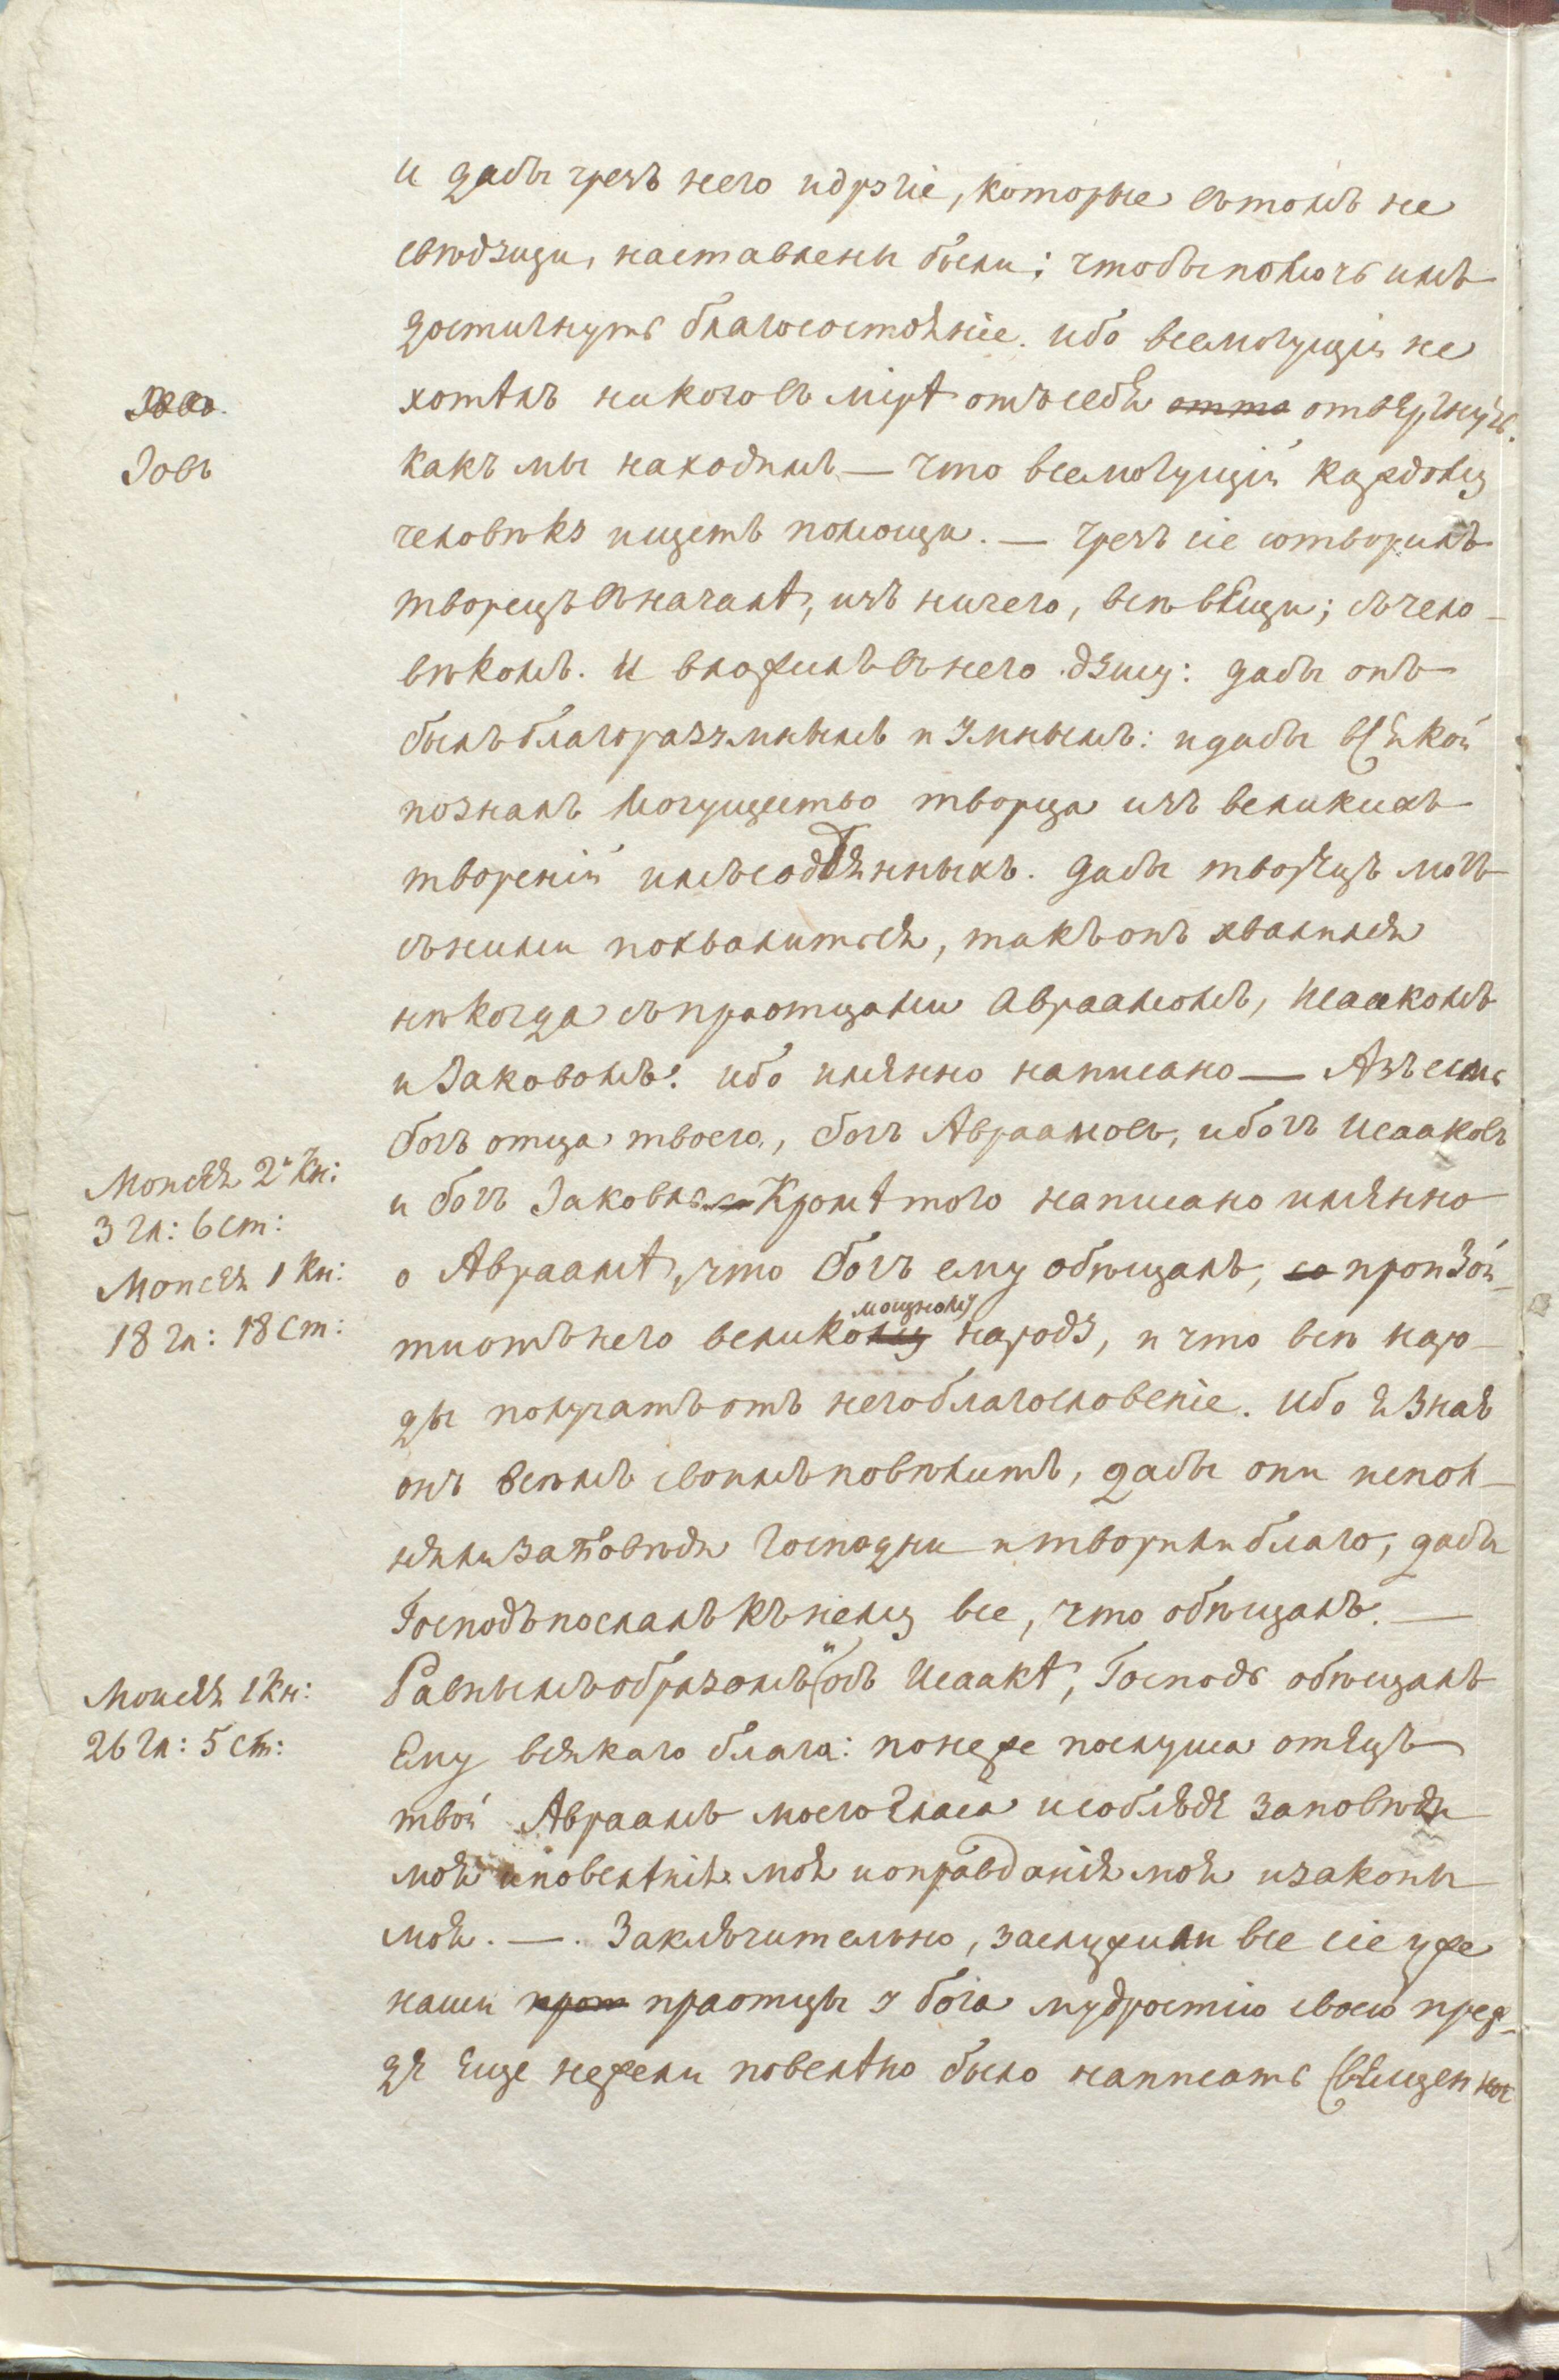 и дабы чрезъ него идрȣгіе, которые въ томъ не
свѣдȣщи, наставлены были; чтобы помочь имъ
достигнуть благосостояніе. ибо всемогущій не
хотѣлъ никого въ мірѣ отъ себя отто отвергнуть.
Іовъ.
Іовъ
какъ мы находимъ — что всемогущій каждому
человѣкȣ ищетъ помощи. — чрезъ сіе сотворилъ
творецъ въ началѣ, изъ ничего, всѣ вѣщи; съ чело-
вѣкомъ. И вложилъ въ него дȣшу: дабы онъ
былъ благоразȣмнымъ и ȣмнымъ: и дабы всякой
позналъ могущество творца изъ великихъ
твореній имъ содѣянныхъ. дабы творецъ могъ
съ ними похвалиться, такъ онъ хвалился
нѣкогда съ праотцами Авраамомъ, Исаакомъ
и Іаковомъ: ибо имянно написано — Азъ есмь
богъ отца твоего, богъ Авраамовъ, и богъ Исааковъ
Моисея 2я Кн:
3 гл: 6 ст:
и богъ Іаковль. Кромѣ того написано имянно
Моисея 1 Кн:
18 гл: 18 ст:
о Авраамѣ, что богъ ему обѣщалъ, со произой-
мощному
ти отъ него великому народȣ, и что всѣ наро-
ды получатъ отъ него благословеніе. Ибо я знаю
онъ всѣмъ своимъ повѣлитъ, дабы они испол-
няли заповѣди Господни и творили благо, дабы
Господь послалъ къ нему все, что обѣщалъ. —
Моисея 1 Кн:
26 гл: 5 ст:
Равнымъ образомъ и объ Исаакѣ, Господь обѣщалъ
Ему всякаго блага: понеже послуша отецъ
твой Авраамъ моего гласа и соблюде заповѣди
моя и повелѣнія моя и оправданія моя и законы
моя. —. Заключительно, заслужили все сіе уже
наши прот праотцы ȣ бога мудростію своею преж-
де еще нежели повелѣно было написать Священное